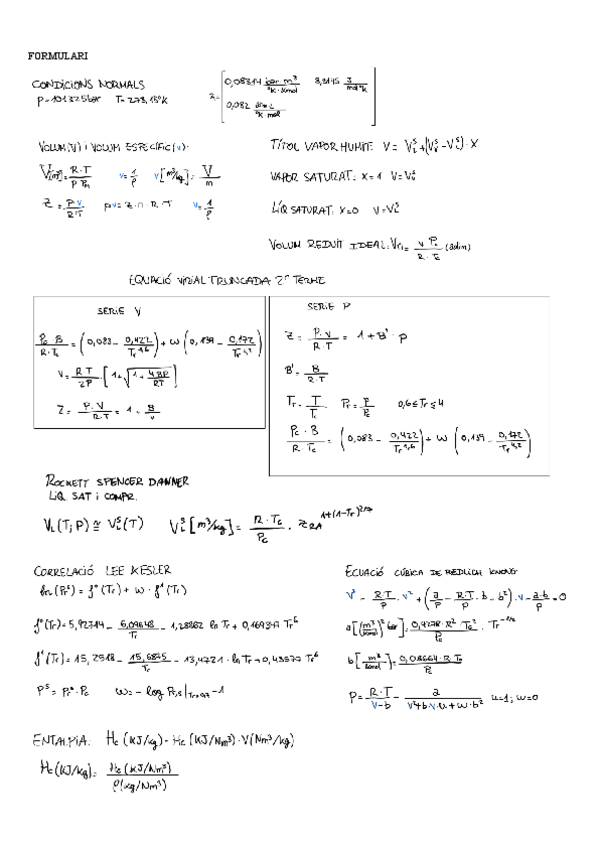 FORMULARI
CONDICIONS NORMALS
P=1,01325 bar T=273,15°K
R= [0,08314 bar m³/°K·kmol 8,3145 J/mol°K
0,082 atm·L/°K mol]
VOLUM(V) I VOLUM ESPECÍFIC(v):
V[m³]= R·T/P Pm v=1/ρ v[m³/kg]= V/m
Z = P v/R T pv=z·n·R·T v=1/ρ
TÍTOL VAPOR HUMIT: V= V_L^S+(V_V^S-V_L^S)·X
VAPOR SATURAT: X=1 V=V_V^S
LÍQ SATURAT: X=0 V=V_L^S
VOLUM REDUIT IDEAL: V_ri= v P_c/R·T_c (adim)
EQUACIÓ VIRIAL TRUNCADA 2n TERME
SERIE V
P_c B/R·T_c = (0,083 - 0,422/Tr^1,6) + W (0,139 - 0,172/Tr^4,2)
V= R T/2P · [1+√(1+ 4BP/RT)]
Z= P·V/R·T = 1+ B/v
SERIE P
Z= P·V/R·T = 1+B'·p
B'= B/R·T
Tr= T/Tc Pr= P/Pc 0,6≤Tr≤4
Pc·B/R·Tc = (0,083 - 0,422/Tr^1,6) + W (0,139 - 0,172/Tr^4,2)
ROCKETT SPENCER DANNER
LÍQ. SAT I COMPR.
V_L(T;P) ≅ V_L^S(T) V_L^S[m³/kg]= R·Tc/Pc · Z_RA^1+(1-Tr)^2/7
CORRELACIÓ LEE KESLER
ln(Pr°) = f°(Tr) + w·f¹(Tr)
f°(Tr)=5,92714 - 6,09648/Tr - 1,28862 ln Tr + 0,169347 Tr^6
f¹(Tr)=15,2518 - 15,6875/Tr - 13,4721·ln Tr + 0,43577 Tr^6
P^S = Pr°·Pc w= -log Pr,s|Tr=0,7 -1
EQUACIÓ CÚBICA DE REDLICH KWONG
V³ - R·T/P·V² + (a/P - R·T/P·b - b²)·V - a·b/P = 0
a[(m³/kmol)² bar]= 0,4278·R²·Tc²/Pc · Tr^-1/2
b[m³/kmol]= 0,08664·R·Tc/Pc
P= R·T/V-b - a/V²+b·V·u+w·b² u=1; w=0
ENTALPIA: Hc (KJ/kg)= Hc (KJ/Nm³)·V(Nm³/kg)
Hc(KJ/kg)= Hc (KJ/Nm³)/ρ(kg/Nm³)